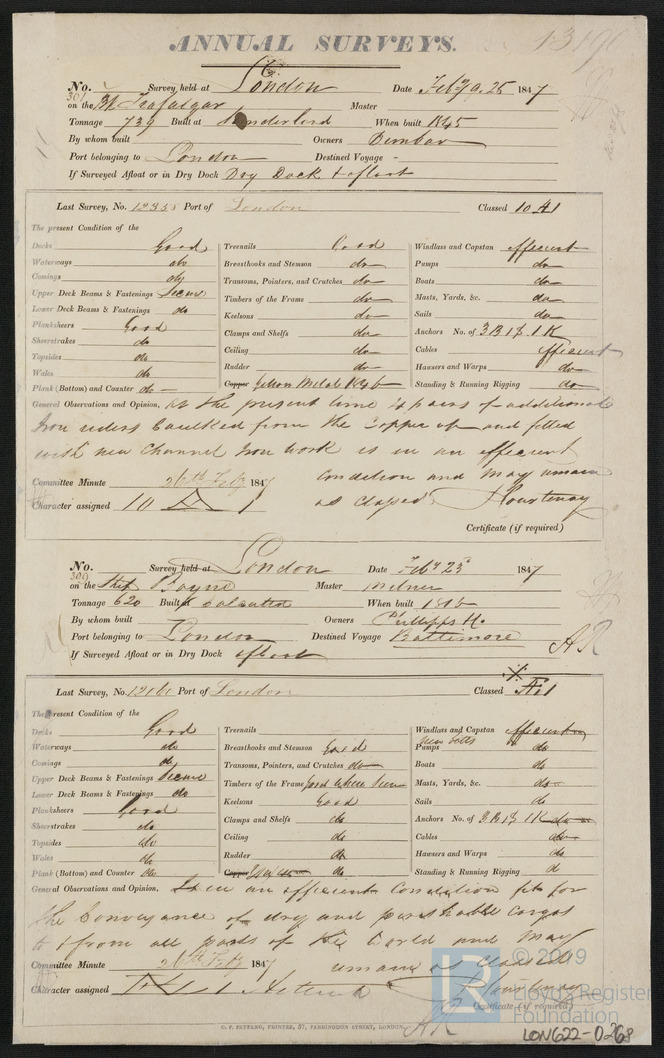 ANNUAL SURVEYS.
No. 301 Survey held at London Date Feb 9. 25 1847
on the Trafalgar Master
Tonnage 739 Built at Sunderland When built 1845
By whom built Owners Dunbar
Port belonging to London Destined Voyage -
If Surveyed Afloat or in Dry Dock Dry Dock & afloat
Last Survey, No. 12358 Port of London Classed 10 A1
The present Condition of the
Decks Good Treenails Good Windlass and Capstan efficient
Waterways do Breasthooks and Stemson do Pumps do
Comings do Transoms, Pointers, and Crutches do Boats do
Upper Deck Beams & Fastenings Secure Timbers of the Frame do Masts, Yards, &c. do
Lower Deck Beams & Fastenings do Keelsons do Sails do
Planksheers Good Clamps and Shelfs do Anchors No. of 3 B 1 S. 1 K
Sheerstrakes do Ceiling do Cables efficient
Topsides do Rudder do Hawsers and Warps do
Wales do Copper Yellow Metal Standing & Running Rigging do
Plank (Bottom) and Counter do
General Observations and Opinion, At the present time 4 pairs of additional
Iron riders Caulked from the Copper up and fitted
with new Channel Iron work is in an efficient
condition and may remain
as classed Courtenay
Committee Minute 26th Feby 1847
Character assigned 10 A 1
Certificate (if required)
No. 300 Survey held at London Date Feby 25 1847
on the Ship Boyne Master Milner
Tonnage 620 Built Calcutta When built
By whom built Owners Phillipps &c.
Port belonging to London Destined Voyage Baltimore
If Surveyed Afloat or in Dry Dock afloat
AR
Last Survey, No. Port of London Classed Æ 1
The present Condition of the
Decks Good Treenails Windlass and Capstan efficient
Waterways do Breasthooks and Stemson Good Pumps do
Comings do Transoms, Pointers, and Crutches do Boats do
Upper Deck Beams & Fastenings Secure Timbers of the Frame Good where seen Masts, Yards, &c. do
Lower Deck Beams & Fastenings do Keelsons Good Sails do
Planksheers Good Clamps and Shelfs do Anchors No. of 3 B 1 S 1 K
Sheerstrakes do Ceiling do Cables do
Topsides do Rudder do Hawsers and Warps do
Wales do Copper do Standing & Running Rigging d
Plank (Bottom) and Counter do
General Observations and Opinion, Is in an efficient Condition fit for
the Conveyance of dry and perishable cargos
to & from all parts of the World and may
remain as classed
Committee Minute 26th Feby 1847
Character assigned Courtenay
Certificate (if required)
AR
C. F. SEYFANG, PRINTER, 57, FARRINGDON STREET, LONDON.
© 2019
LR Lloyd's Register
Foundation
LON622-0268